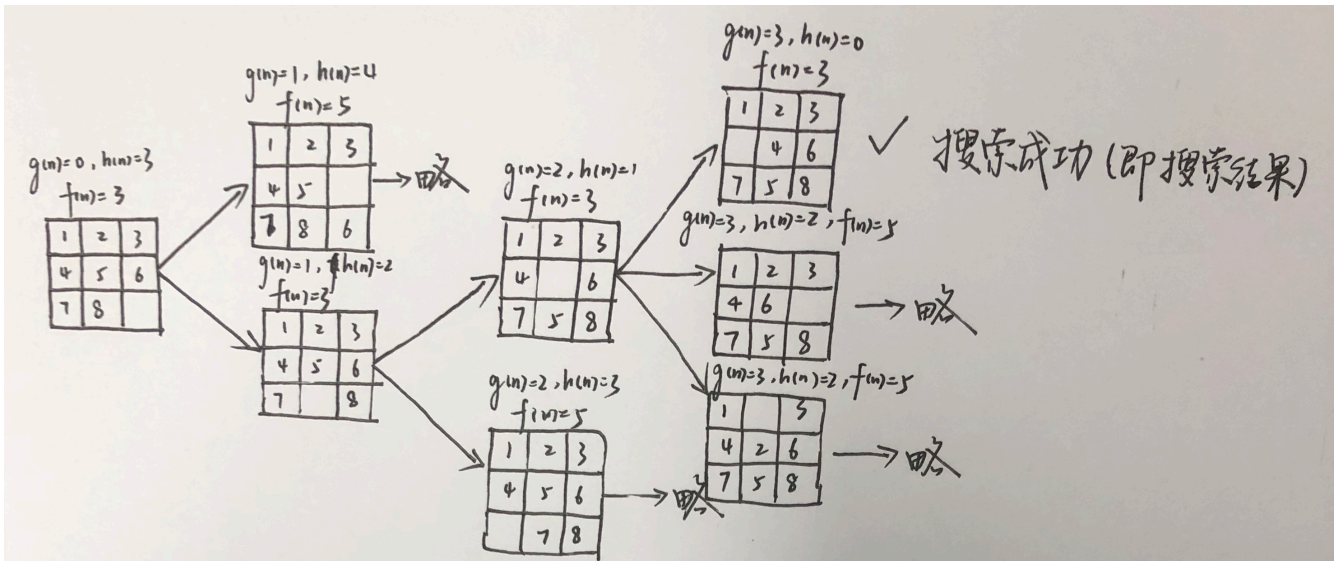 g(n)=0, h(n)=3
f(n)=3
1 2 3
4 5 6
7 8
g(n)=1, h(n)=4
f(n)=5
1 2 3
4 5
7 8 6
→略
g(n)=1, h(n)=2
f(n)=3
1 2 3
4 5 6
7 8
g(n)=2, h(n)=1
f(n)=3
1 2 3
4 6
7 5 8
g(n)=2, h(n)=3
f(n)=5
1 2 3
4 5 6
7 8
→略
g(n)=3, h(n)=0
f(n)=3
1 2 3
4 6
7 5 8
✓ 搜索成功(即搜索结果)
g(n)=3, h(n)=2, f(n)=5
1 2 3
4 6
7 5 8
→略
g(n)=3, h(n)=2, f(n)=5
1 3
4 2 6
7 5 8
→略